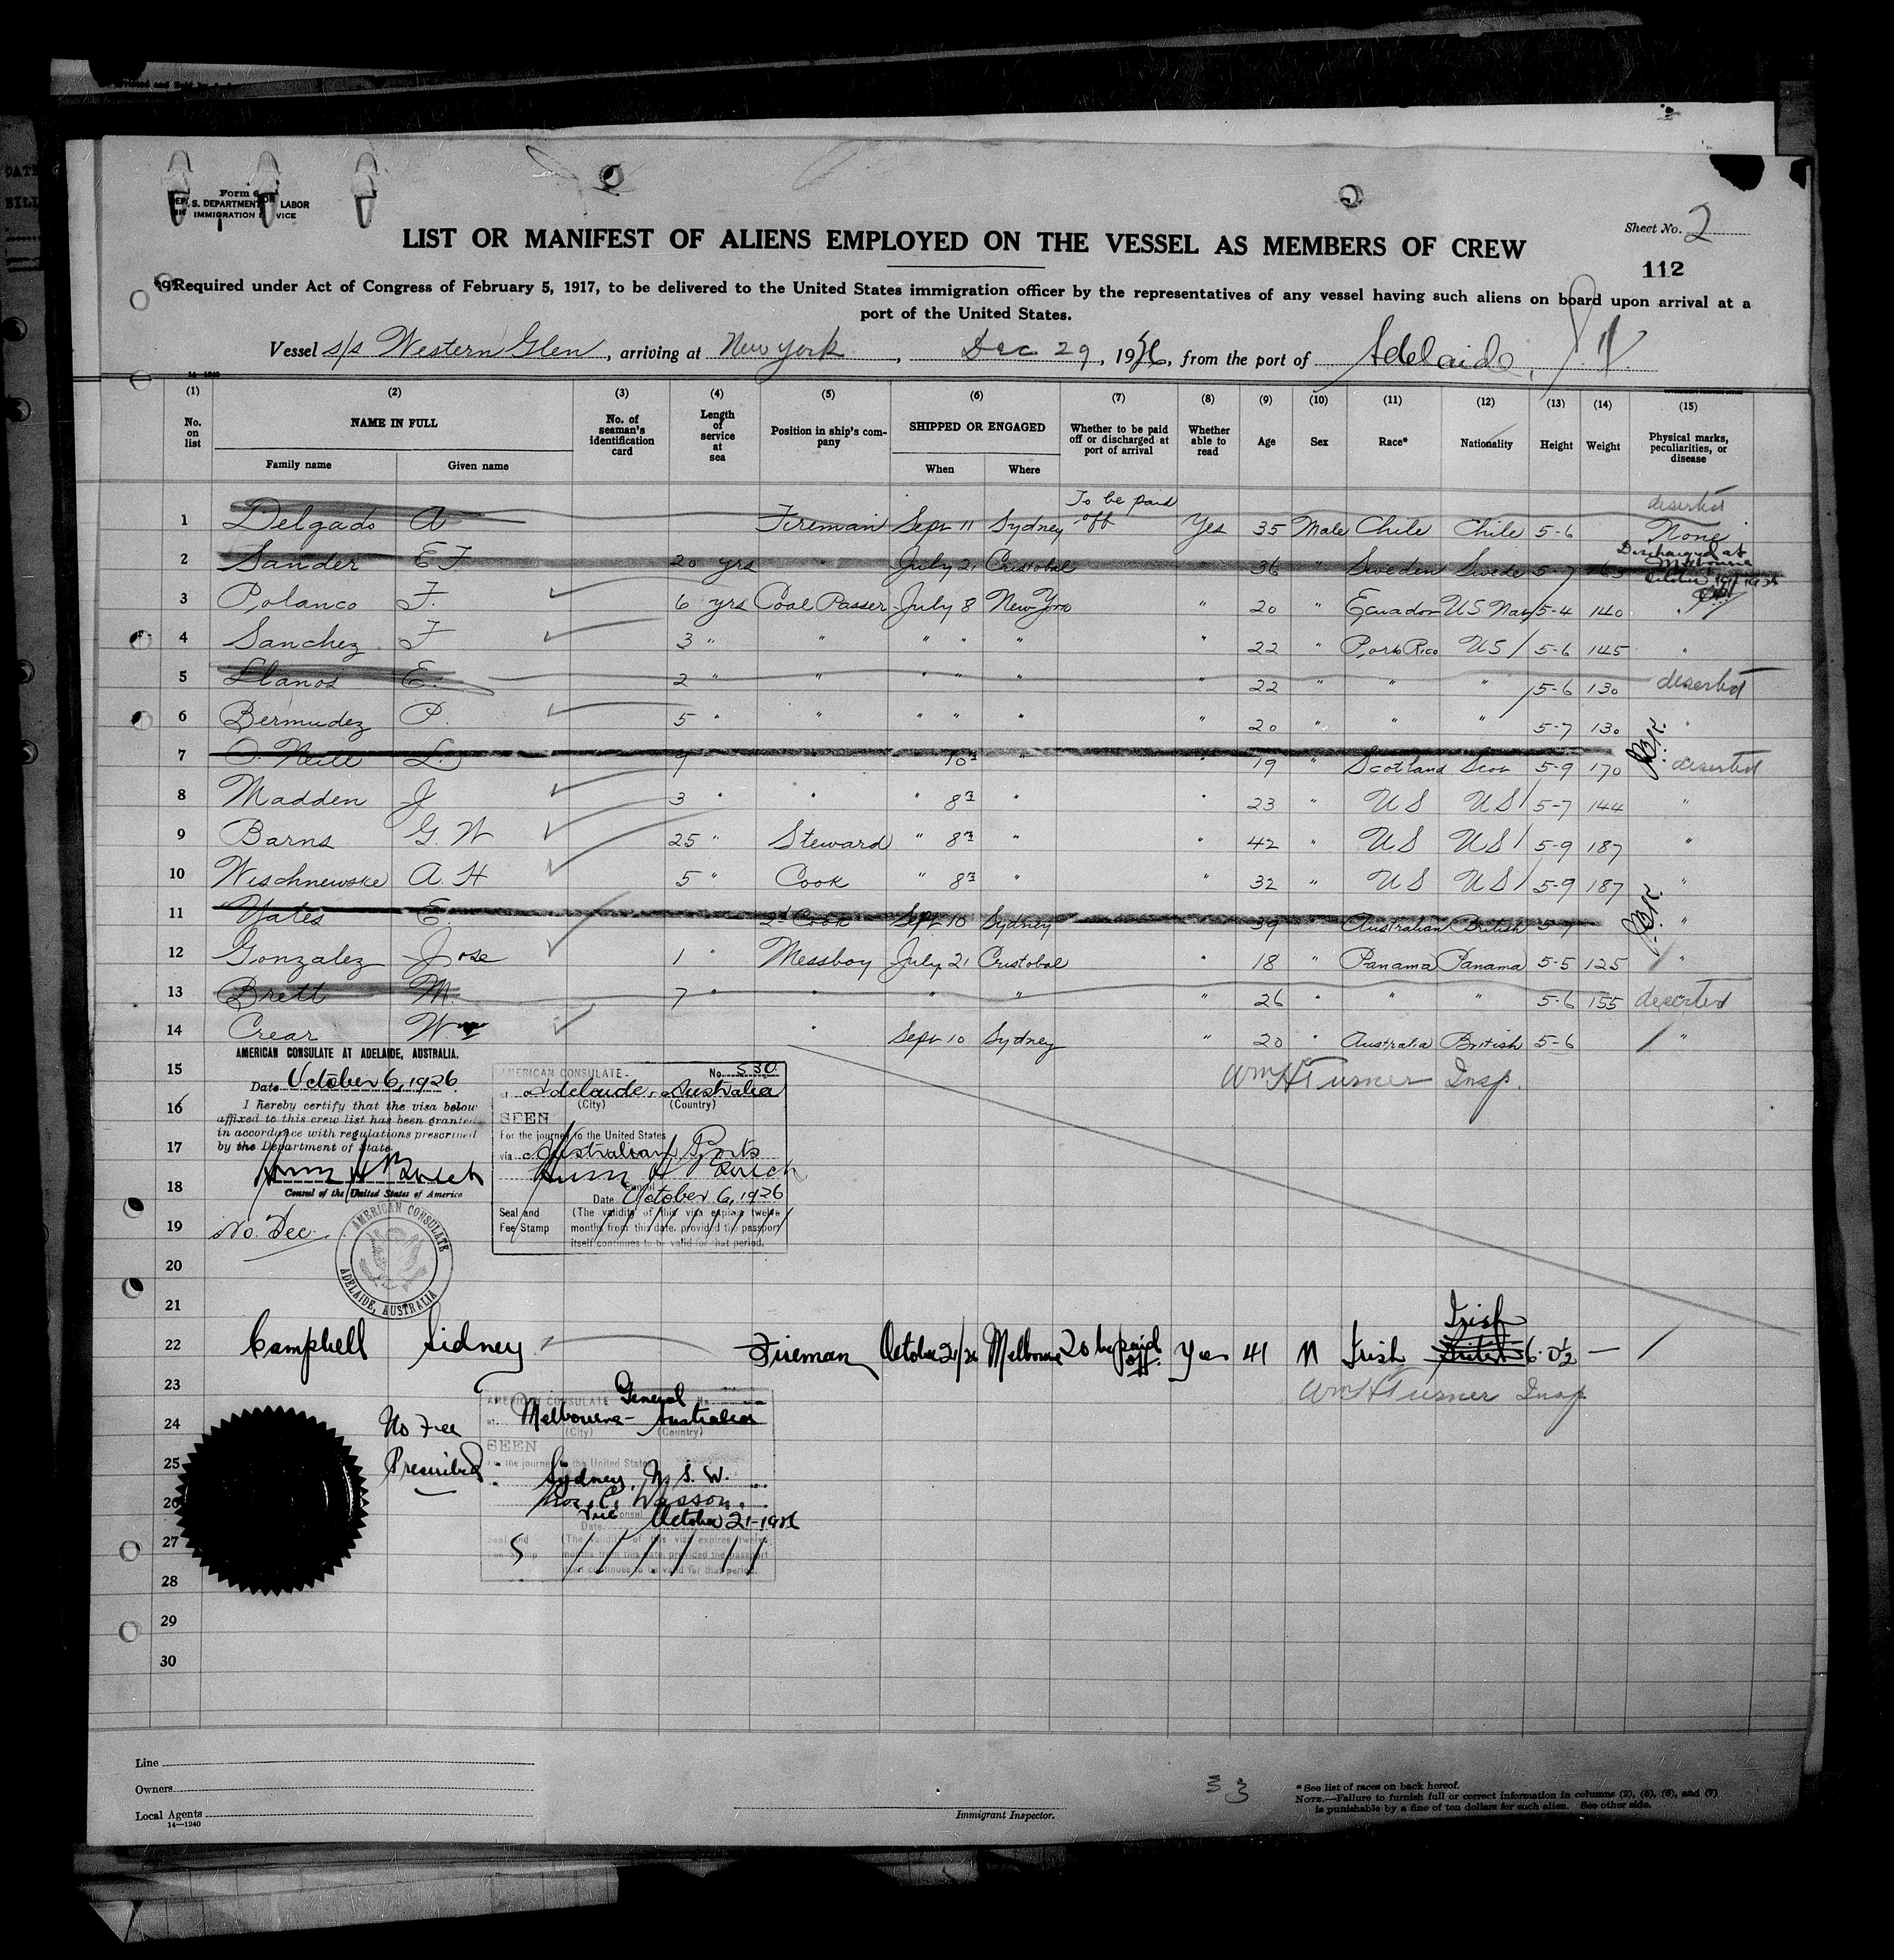 Form 6
S. DEPARTMENT OF LABOR
IMMIGRATION SERVICE
LIST OR MANIFEST OF ALIENS EMPLOYED ON THE VESSEL AS MEMBERS OF CREW
Sheet No. 2
112
Required under Act of Congress of February 5, 1917, to be delivered to the United States immigration officer by the representatives of any vessel having such aliens on board upon arrival at a
port of the United States.
Vessel s/s Western Glen, arriving at New York, Dec 29, 1926, from the port of Adelaide,
14—1240
(1) (2) (3) (4) (5) (6) (7) (8) (9) (10) (11) (12) (13) (14) (15)
No. on list NAME IN FULL No. of seaman's identification card Length of service at sea Position in ship's company SHIPPED OR ENGAGED Whether to be paid off or discharged at port of arrival Whether able to read Age Sex Race* Nationality Height Weight Physical marks, peculiarities, or disease
Family name Given name When Where
1 Delgado A Fireman Sept 11 Sydney To be paid off Yes 35 Male Chile Chile 5-6 None deserted
2 Sander E F 20 yrs " July 21 Cristobal " 36 " Sweden Swede 5-7 163 Discharged at Melbourne
3 Polanco F. 6 yrs Coal Passer July 8 New York " 20 " Ecuador US Nav 5-4 140 "
4 Sanchez F 3 " " " " " " 22 " Porto Rico US 5-6 145 "
5 Llanos E. 2 " " " " " " 22 " " " 5-6 130 deserted
6 Bermudez P. 5 " " " " " " 20 " " " 5-7 130 "
7 O'Neill L. 9 10th " " 19 " Scotland Scot 5-9 170 deserted
8 Madden J 3 " " " 8th " " 23 " US US 5-7 144 "
9 Barns G. W 25 " Steward " 8th " " 42 " US US 5-9 187 "
10 Wischnewske A. H 5 " Cook " 8th " " 32 " US US 5-9 187 "
11 Yates E. 2d Cook Sept 10 Sydney 39 Australian British 5-7 "
12 Gonzalez Jose 1 " Messboy July 21 Cristobal " 18 " Panama Panama 5-5 125 "
13 Brett M. 7 " " " " " 26 " " " 5-6 155 deserted
14 Crear Wm " Sept 10 Sydney " 20 " Australia British 5-6 "
Wm H Turner Insp.
15
16
17
18
19
20
21
AMERICAN CONSULATE AT ADELAIDE, AUSTRALIA.
Date October 6, 1926
I hereby certify that the visa below
affixed to this crew list has been granted
in accordance with regulations prescribed
by the Department of State.
Consul of the United States of America
No Fee
AMERICAN CONSULATE
ADELAIDE, AUSTRALIA
AMERICAN CONSULATE No. 530
at Adelaide, Australia
(City) (Country)
SEEN
For the journey to the United States
via Australian Ports
Consul
Date October 6, 1926
Seal and (The validity of this visa expires twelve
Fee Stamp months from this date, provided the passport
itself continues to be valid for that period.
22 Campbell Sidney Fireman October 21/26 Melbourne To be paid off. Yes 41 M Irish Irish 6-0½ —
Wm H Turner Insp
23
24
25
26
27
28
29
30
No Fee
Prescribed
AMERICAN CONSULATE General
at Melbourne - Australia
(City) (Country)
SEEN
For the journey to the United States
Sydney, N. S. W.
Thos. C. Wasson
Vice Consul
Date October 21-1926
Seal and (The validity of this visa expires twelve
months from this date, provided the passport
itself continues to be valid for that period.
Line
Owners
Local Agents
14—1240
Immigrant Inspector.
33
*See list of races on back hereof.
NOTE.—Failure to furnish full or correct information in columns (2), (5), (6), and (7)
is punishable by a fine of ten dollars for each alien. See other side.